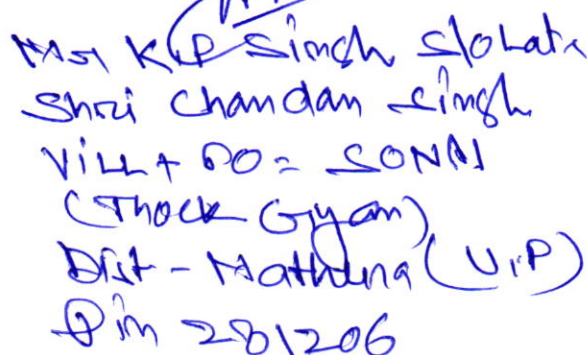 Mr K.P Singh S/o Late
Shri Chandan Singh
Vill + PO = SONAI
(Thock Gyan)
Dist - Mathura (U.P)
Pin 281206